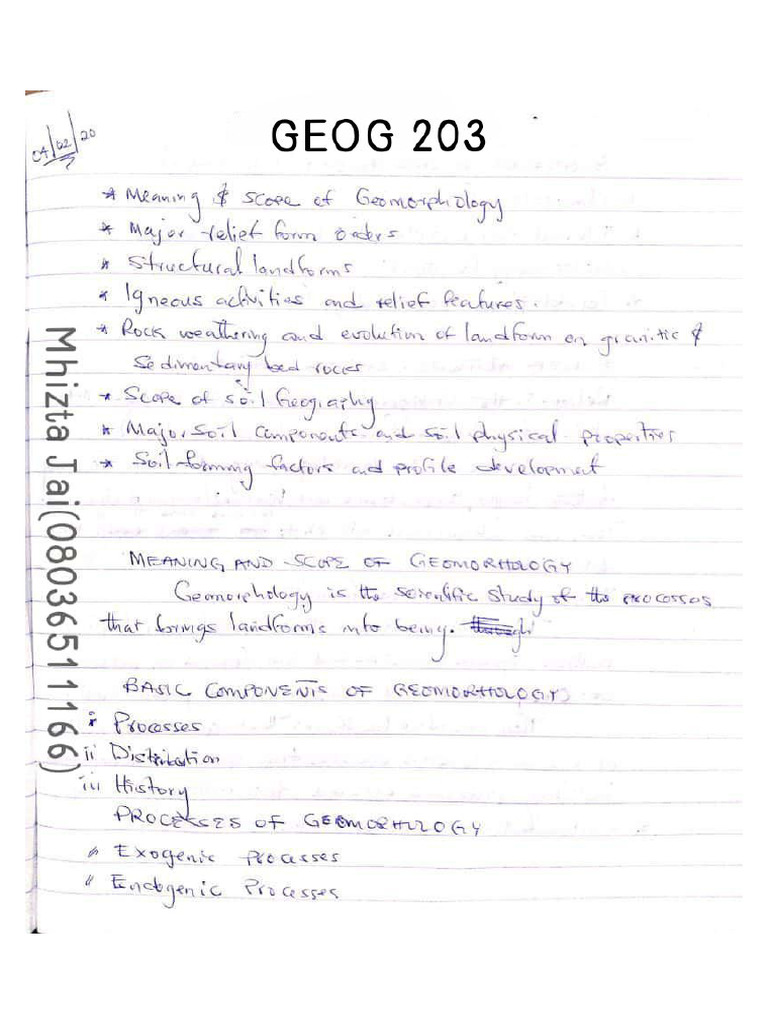 GEOG 203
04/02/20
* Meaning & scope of Geomorphology
* Major relief form orders
* Structural landforms
* Igneous activities and relief features.
* Rock weathering and evolution of landform on granitic &
Sedimentary bed rocks
* Scope of soil Geography
* Major soil components and soil physical properties
* Soil-forming factors and profile development
MEANING AND SCOPE OF GEOMORPHOLOGY
Geomorphology is the scientific study of the processes
that brings landforms into being.
BASIC COMPONENTS OF GEOMORPHOLOGY
i Processes
ii Distribution
iii History
PROCESSES OF GEOMORPHOLOGY
" Exogenic processes
" Endogenic Processes
Mhizta Jai(08036511166)